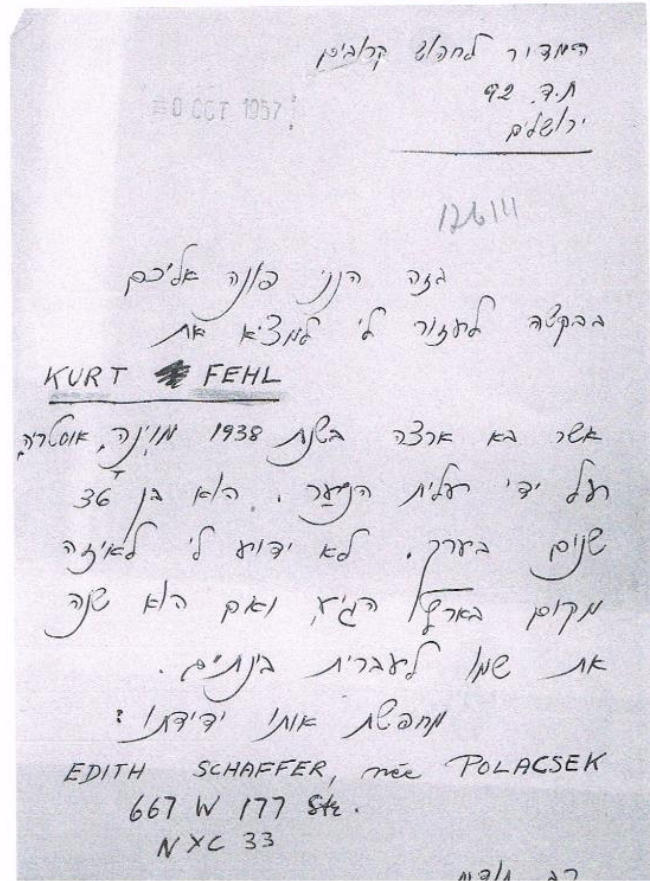 המדור לחפוש קרובים
ת.ד. 92
ירושלים
OCT 1957
126111
בזה הנני פונה אליכם
בבקשה לעזור לי למצא את
KURT FEHL
אשר בא ארצה בשנת 1938 מוינה, אוסטריה,
על ידי עלית הנוער. הוא בן 36
שנים בערך. לא ידוע לי לאיזה
מקום בארץ הגיע ואם הוא שנה
את שמו לעברית בינתים.
מחפשת אותו ידידתו:
EDITH SCHAFFER, née POLACSEK
667 W 177 Str.
NYC 33
רב תודות